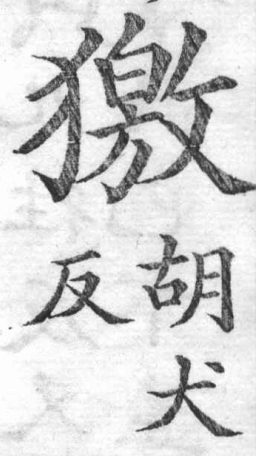 獥
胡犬
反